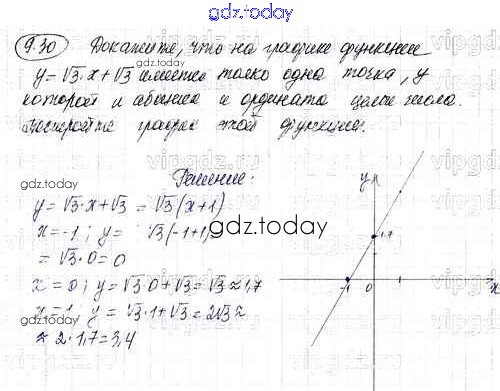 gdz.today
9.30 Докажите, что на графике функции
y=√3·x+√3 имеется только одна точка, у
которой и абсцисса и ордината целые числа.
Постройте график этой функции.
Решение:
gdz.today
y=√3·x+√3 = √3(x+1)
x=-1; y= √3(-1+1)
= √3·0=0
x=0; y=√3·0+√3=√3≈1,7
x=1; y=√3·1+√3=2√3≈
≈2·1,7=3,4
gdz.today
y
1,7
-1 0 x
gdz.today
vipgdz.ru